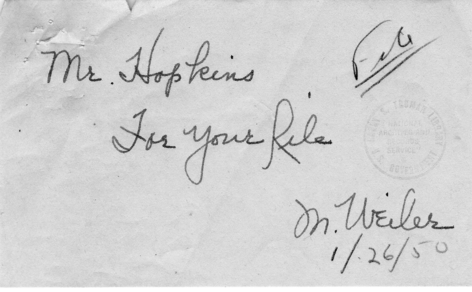 Mr. Hopkins
File
For Your File
M. Weiler
1/26/50